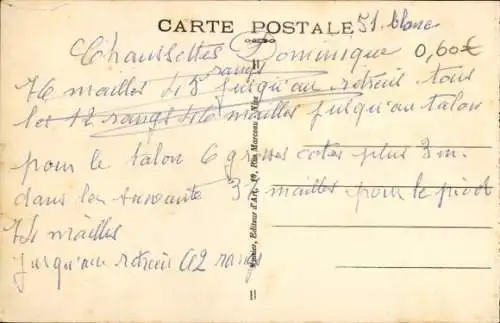 CARTE POSTALE
51. blanc
Chaussettes Dominique
0,60€
rangs
76 mailles 45 jusqu'au retreci tous
les 12 rangs 46 mailles jusqu'au talon
pour le talon 6 grosses cotes plus 3 m.
dans les suivante 3 mailles pour le pied
74 mailles
jusqu'au retreci 62 rangs
Editeur d'Art, 19, Rue Marceau, Nice